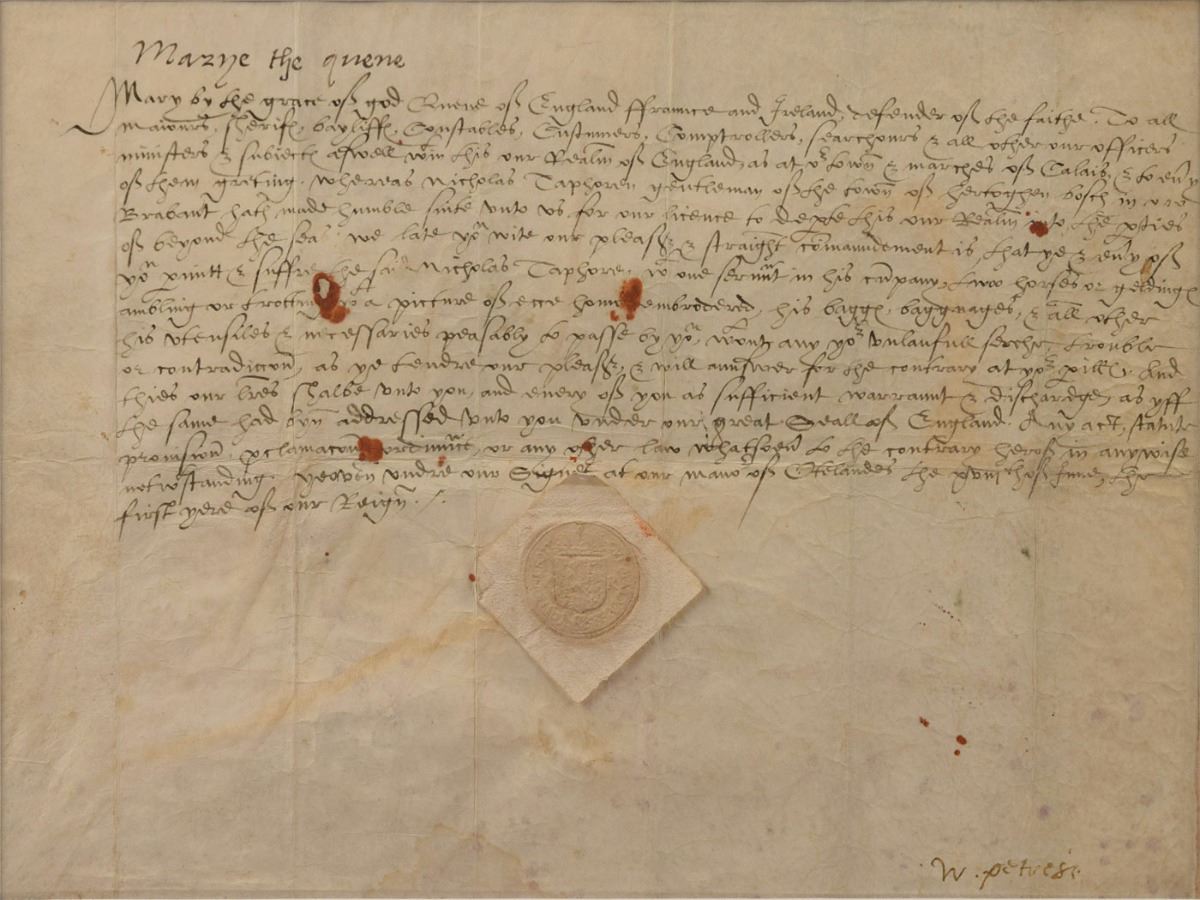 Marye the quene
Mary by the grace off god Quene off England ffraunce and Ireland, defender off the faithe. To all
maiours, sherifs, bayliffs, Constables, Customers, Comptrollers, searchours & all other our officers
ministers & subiects aswell win this our Realm off England, as at or town & marches off Calais, &
off them greting. whereas Nicholas Taphoren gentleman off the town off hertoghen bosch in
Brabant hath made humble sute vnto vs for our licence to depte this our Realm to the pties
off beyond the sea. we late yow wite our pleasr & straight comaundement is that ye & euy off
yow pmitt & suffre the said Nicholas Taphore, wt one serunt in his cumpany, two horses or geldings
ambling or trotting a picture off ecce homo embrodered, his baggs, baggnages, & all other
his vtensiles & necessaries peasably to passe by yow, wout any yor vnlaufull serche, trouble
or contradiccon, as ye tendre our pleasr, & will aunswer for the contrary at yor pills. And
thies our lres shalbe vnto you, and euery off you as sufficient warraunt & dischardge, as yff
the same had byn addressed vnto you vnder our great Seall off England. Any act, statute
prouision, pclamacon, or any other law whatsoeu to the contrary heroff in anywise
notwtstanding. yeoven vndre our Signet at our manor off Otelandes the the
first yere off our Reign.
W. petres.